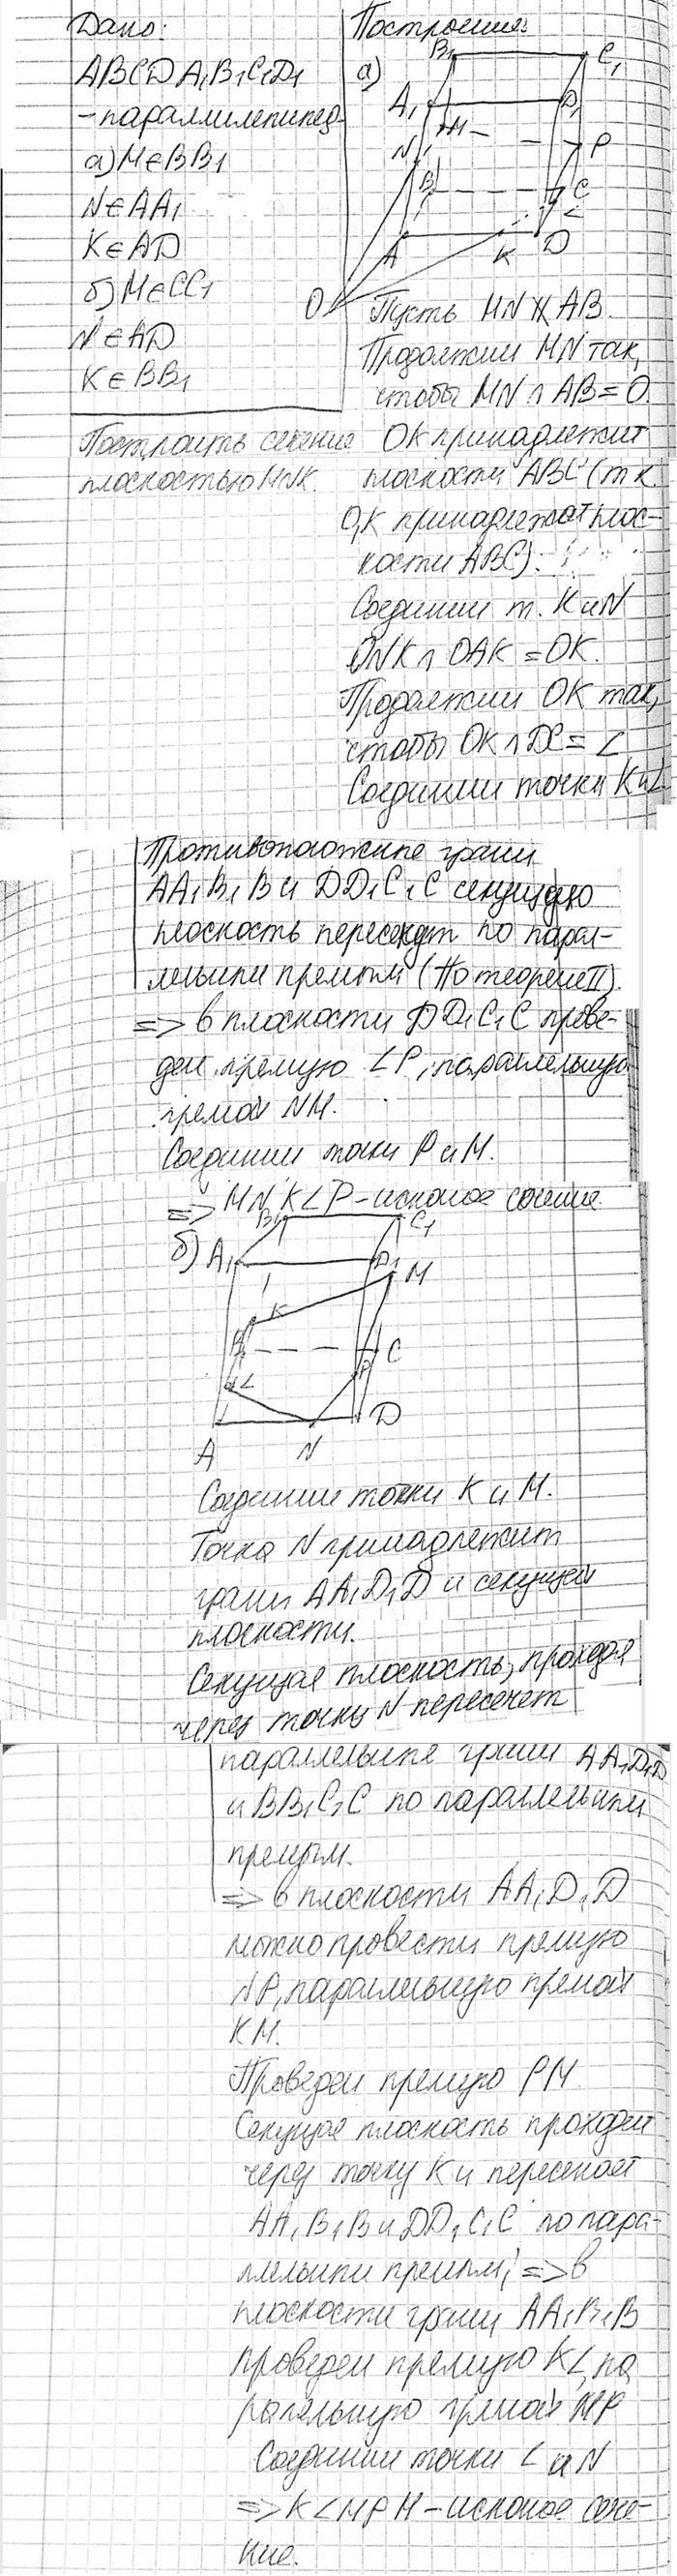 Дано:
ABCDA₁B₁C₁D₁
- параллилепипед
а) M∈BB₁
N∈AA₁
K∈AD
б) M∈CC₁
N∈AD
K∈BB₁
Построить сечение
плоскостью MNK.
Построение:
а)
B₁ C₁
A₁ D₁
M
N P
B C
L
A K D
O
Пусть MN ∦ AB.
Продолжим MN так,
чтобы MN ∩ AB = O.
OK принадлежит
плоскости ABC (т к
O,K принадлежат плос-
кости ABC).
Соединим т. K и N
ONK ∩ OAK = OK.
Продолжим OK так,
чтобы OK ∩ DC = L
Соединим точки K и L
Противоположные грани
AA₁B₁B и DD₁C₁C секущую
плоскость пересекут по парал-
лельным прямым (по теореме II).
=> в плоскости DD₁C₁C прове-
дем прямую LP, параллельную
прямой NM.
Соединим точки P и M.
=> MNKLP - искомое сечение
б)
B₁ C₁
A₁ D₁
M
K
B C
P
L
D
A N
Соединим точки K и M.
Точка N принадлежит
грани AA₁D₁D и секущей
плоскости.
Секущая плоскость, проходя
через точку N пересечет
параллельные грани AA₁D₁D
и BB₁C₁C по параллельным
прямым.
=> в плоскости AA₁D₁D
можно провести прямую
NP, параллельную прямой
KM.
Проведем прямую PM
Секущая плоскость проходит
через точку K и пересекает
AA₁B₁B и DD₁C₁C по пара-
ллельным прямым, => в
плоскости грани AA₁B₁B
проведем прямую KL, па
ралельную прямой MP
Соединим точки L и N
=> KLNPM - искомое сече-
ние.